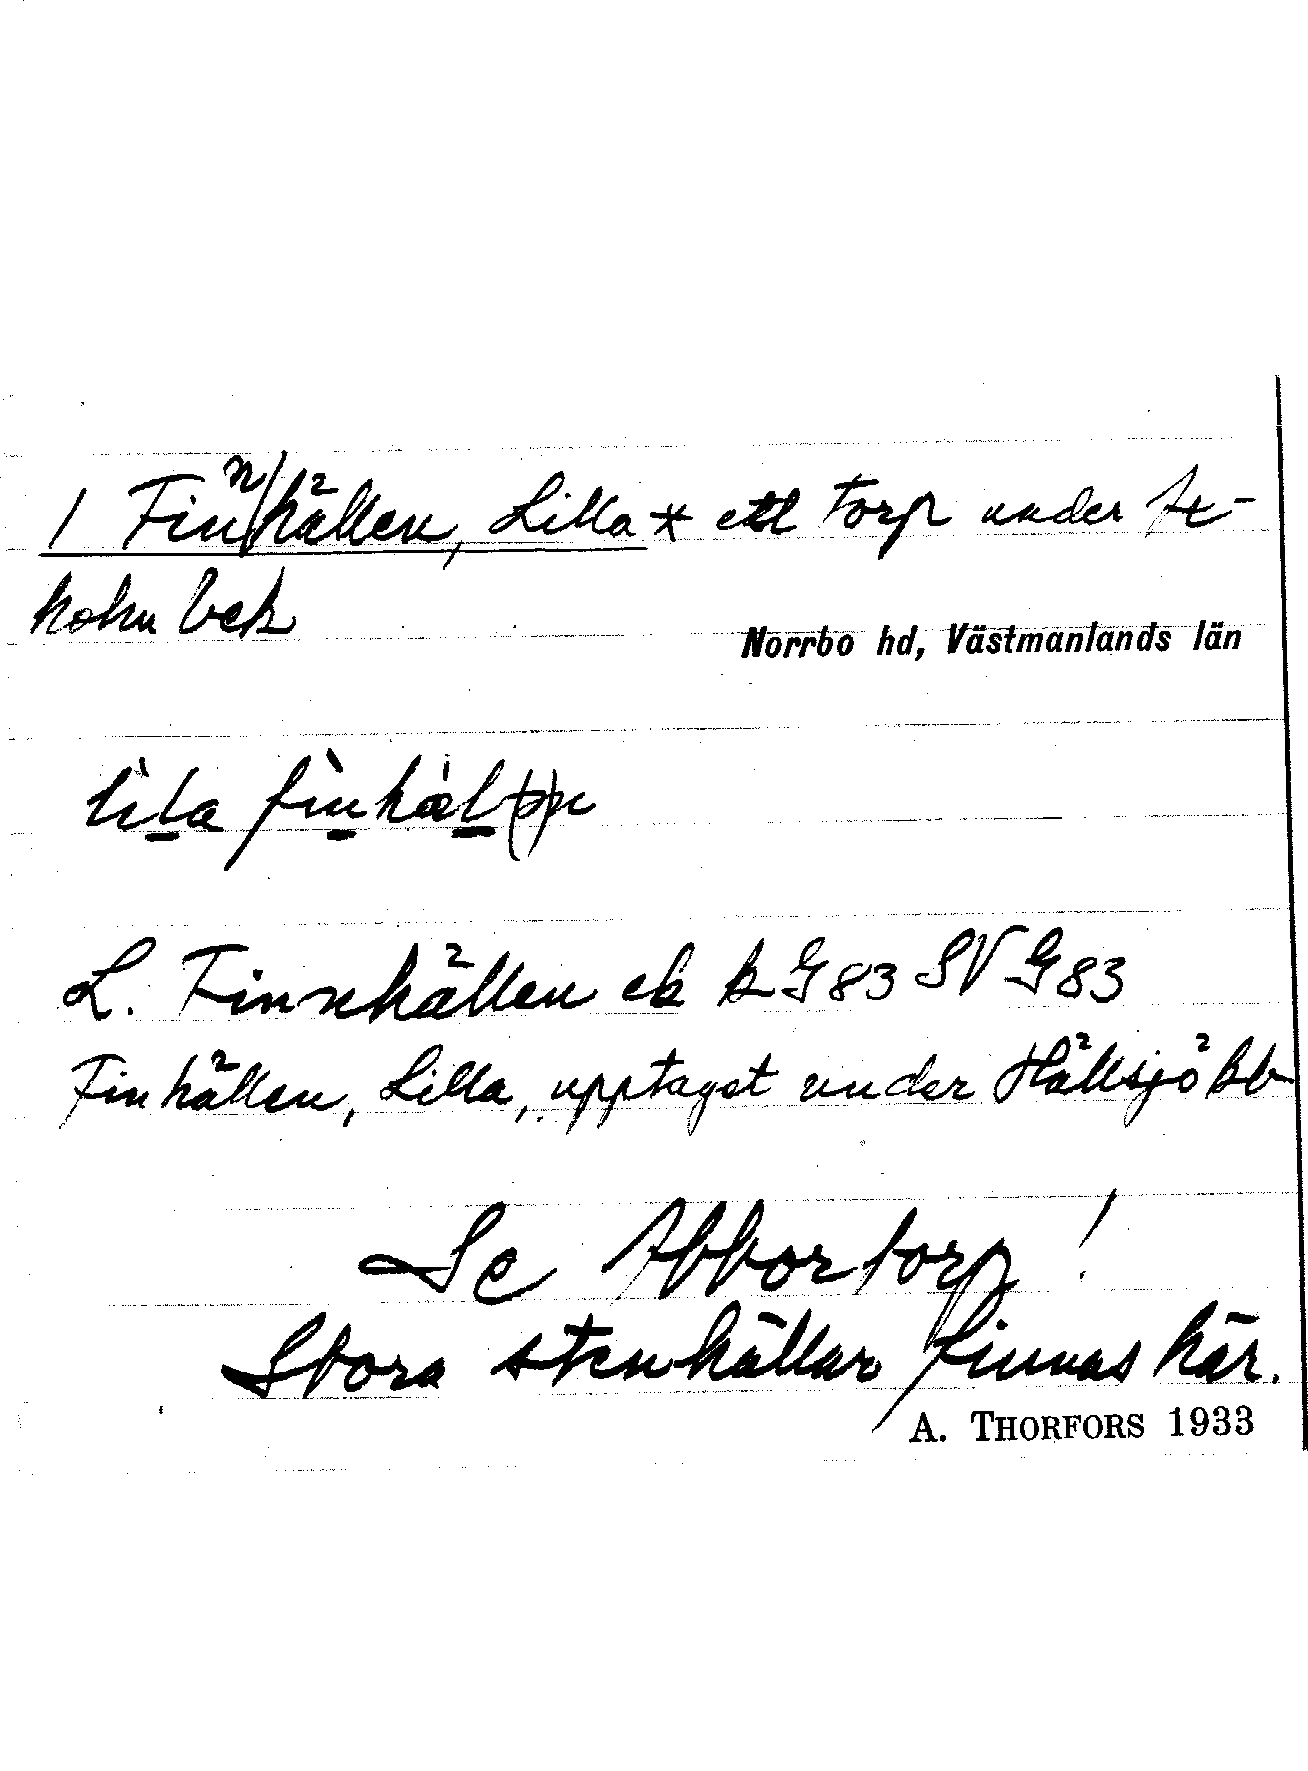 1 Finnhällen, Lilla * ett torp under
Norrbo hd, Västmanlands län
lila finhäl(ə)n
L. Finnhällen ek k G83 SV G83
Finhällen, Lilla, upptaget under Hällsjö
Se Abbortorp!
Stora stenhällar finnas här.
A. THORFORS 1933